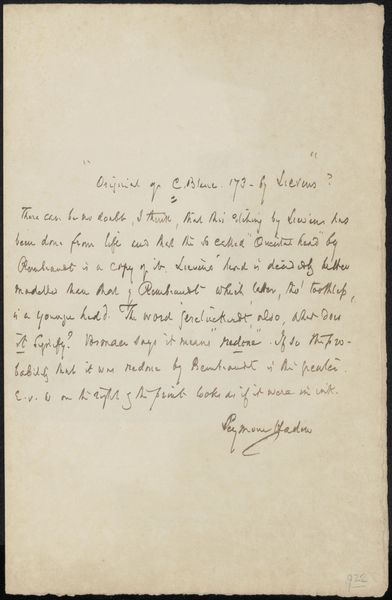 "Original of C. Blanc. 173 - by Lievens"?
There can be no doubt, I think, that this etching by Lievens has
been done from life and that the so called "Oriental head" by
Rembrandt is a copy of it. Lievens' head is decidedly better
modelled than that of Rembrandt which latter, tho' toothless,
is a younger head. The word geretuckerdt, also, what does
it signify? Vosmaer says it means "redone". If so the pro-
bability that it was redone by Rembrandt is the greater.
on the right of the print looks as if it were in ink.
Seymour Haden
922